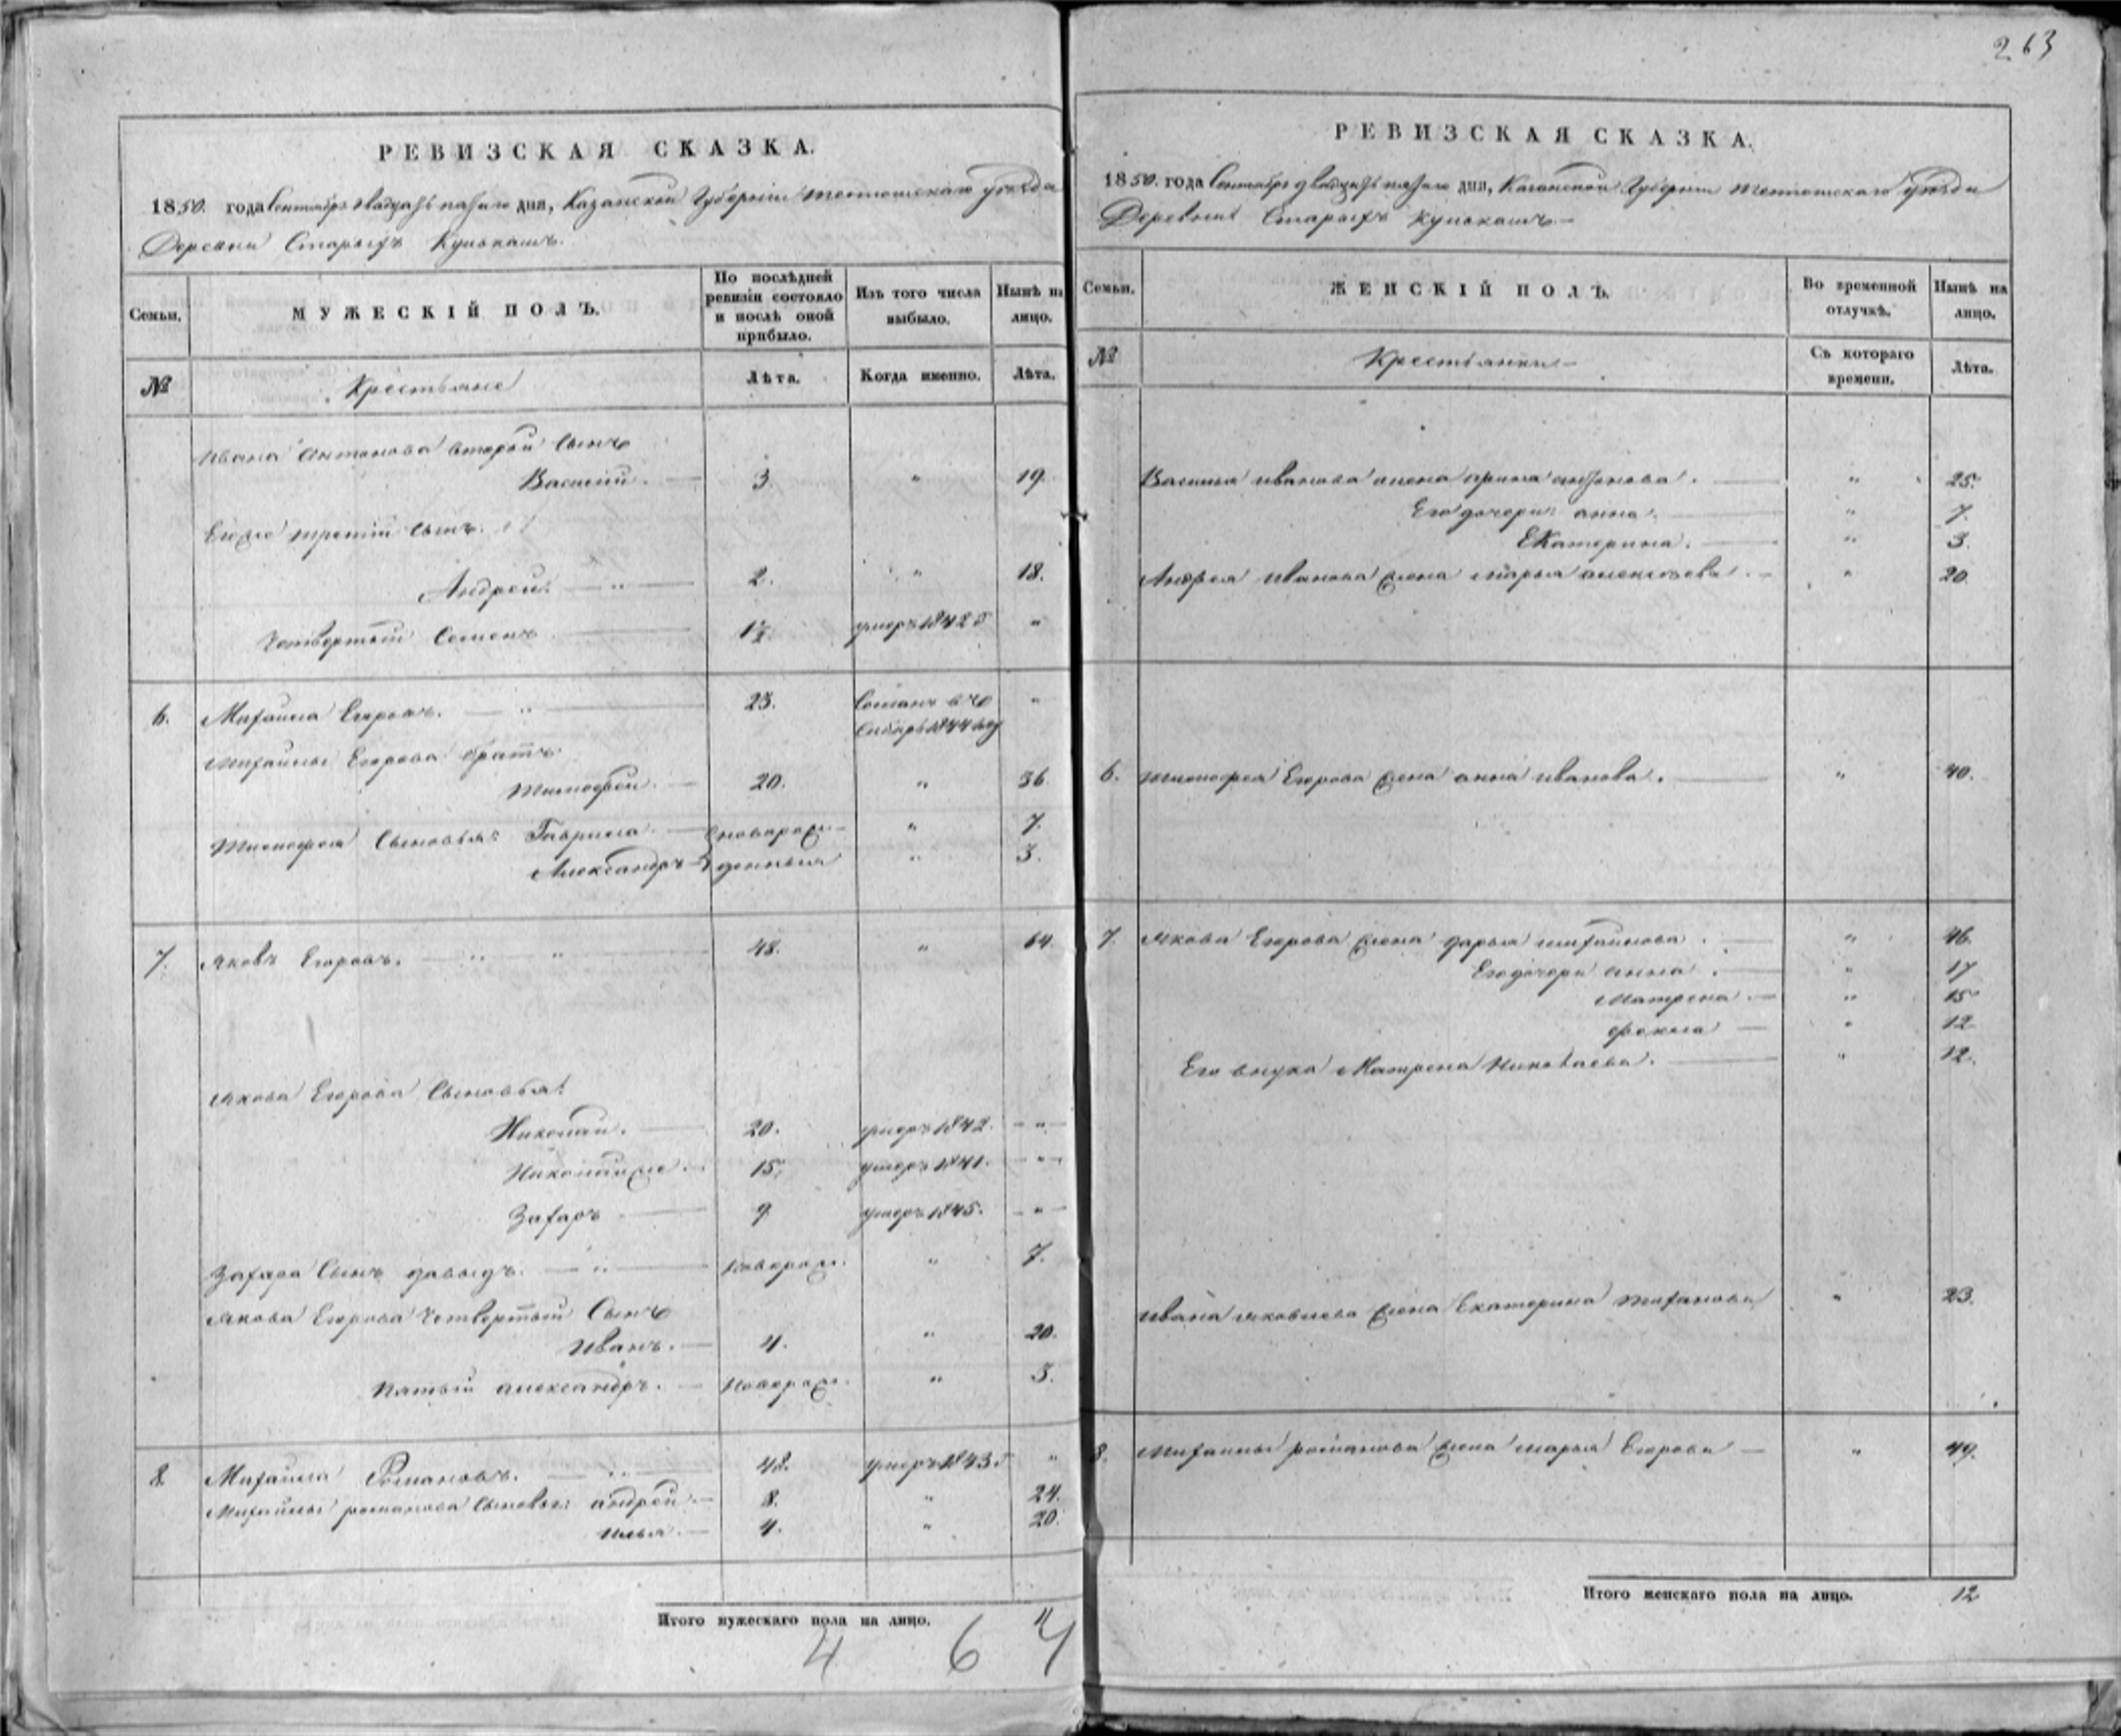 263
РЕВИЗСКАЯ СКАЗКА.
1850. года Сентября двадцать пятого дня, Казанской Губерніи Тетюшскаго уѣзда
Деревни Старыхъ
Семьи.
МУЖЕСКІЙ ПОЛЪ.
По послѣдней ревизіи состояло и послѣ оной прибыло.
Изъ того числа выбыло.
Нынѣ на лицо.
№
Крестьяне
Лѣта.
Когда именно.
Лѣта.
Ивана Антонова второй Сынъ
Василій. 3. " 19.
Его же третій сынъ.
Андрей. " 2. " 18.
Четвертый Семенъ 1½. умеръ 1842 "
6. Михаила Егоровъ. " 23. Сосланъ въ Сибирь 1844 "
Михайлы Егорова братъ
Тимофей. 20. " 36
Тимофея Сыновья: Гаврила. новорож- " 7.
Александръ денныя " 3.
7. Яковъ Егоровъ. " " 48. " 64.
Якова Егорова Сыновья:
Николай. 20. умеръ 1842. "
Николай же. 15. умеръ 1841. "
Захаръ 9. умеръ 1845. "
Захара Сынъ Давыдъ. " новорож. " 7.
Якова Егорова Четвертый Сынъ
Иванъ. 4. " 20.
Пятый Александръ. новорож. " 3.
8. Михаила Романовъ. " 48. умеръ 1843 "
Михайлы Романова Сыновья: Андрей. 8. " 24.
Илья. 4. " 20.
Итого мужескаго пола на лицо. 11
4 6 4
РЕВИЗСКАЯ СКАЗКА.
1850. года Сентября двадцать пятого дня, Казанской Губерніи Тетюшскаго уѣзда
Деревни Старыхъ
Семьи.
ЖЕНСКІЙ ПОЛЪ.
Во временной отлучкѣ.
Нынѣ на лицо.
№
Крестьянки
Съ котораго времени.
Лѣта.
Василья Иванова жена Арина Антонова. " 25.
Его дочери: Анна. " 7.
Екатерина. " 3.
Андрея Иванова жена Марья Алексѣева. " 20.
6. Тимофея Егорова жена Анна Иванова. " 40.
7. Якова Егорова жена Дарья Михайлова. " 46.
Его дочери Анна. " 17
Матрена. " 15
Фекла " 12
Его внука Матрена Николаева. " 12.
Ивана Яковлева жена Екатерина " 23.
8. Михайлы Романова жена Марья Егорова " 49.
Итого женскаго пола на лицо. 12